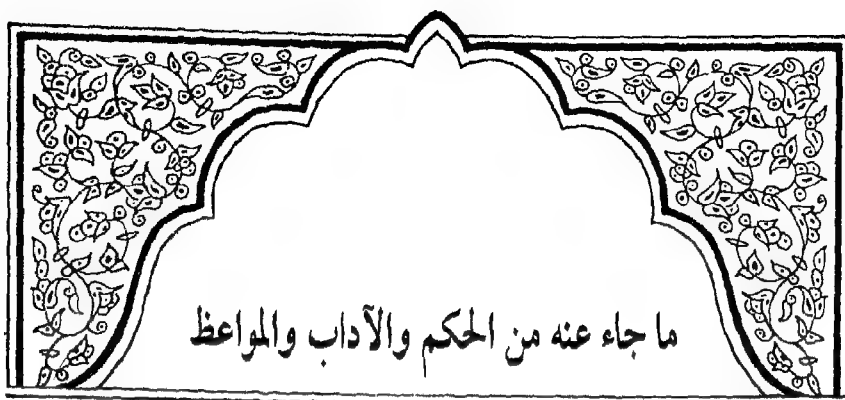 ما جاء عنه من الحكم والآداب والمواعظ